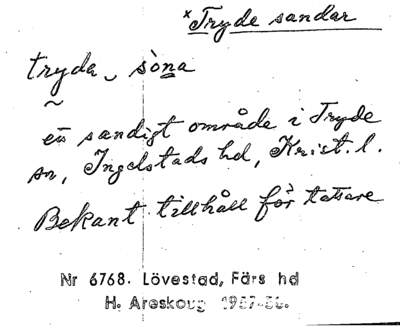 *Tryde sandar
tryda sòna
~
ett sandigt område i Tryde
sn, Ingelstads hd, Krist. l.
Bekant tillhåll för tattare
Nr 6768. Lövestad, Färs hd
H. Areskoug